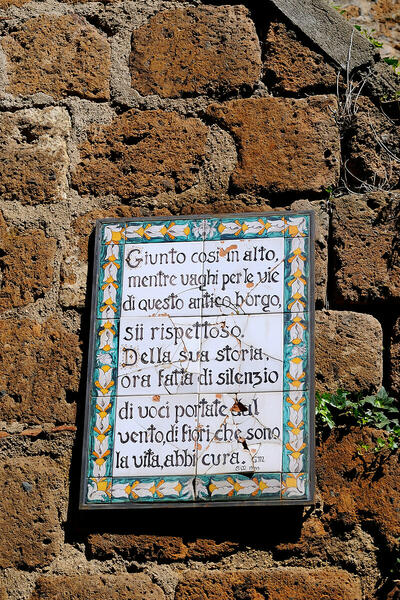 Giunto così in alto,
mentre vaghi per le vie
di questo antico borgo,
sii rispettoso.
Della sua storia,
ora fatta di silenzio
di voci portate dal
vento, di fiori che sono
la vita, abbi cura. G.M.